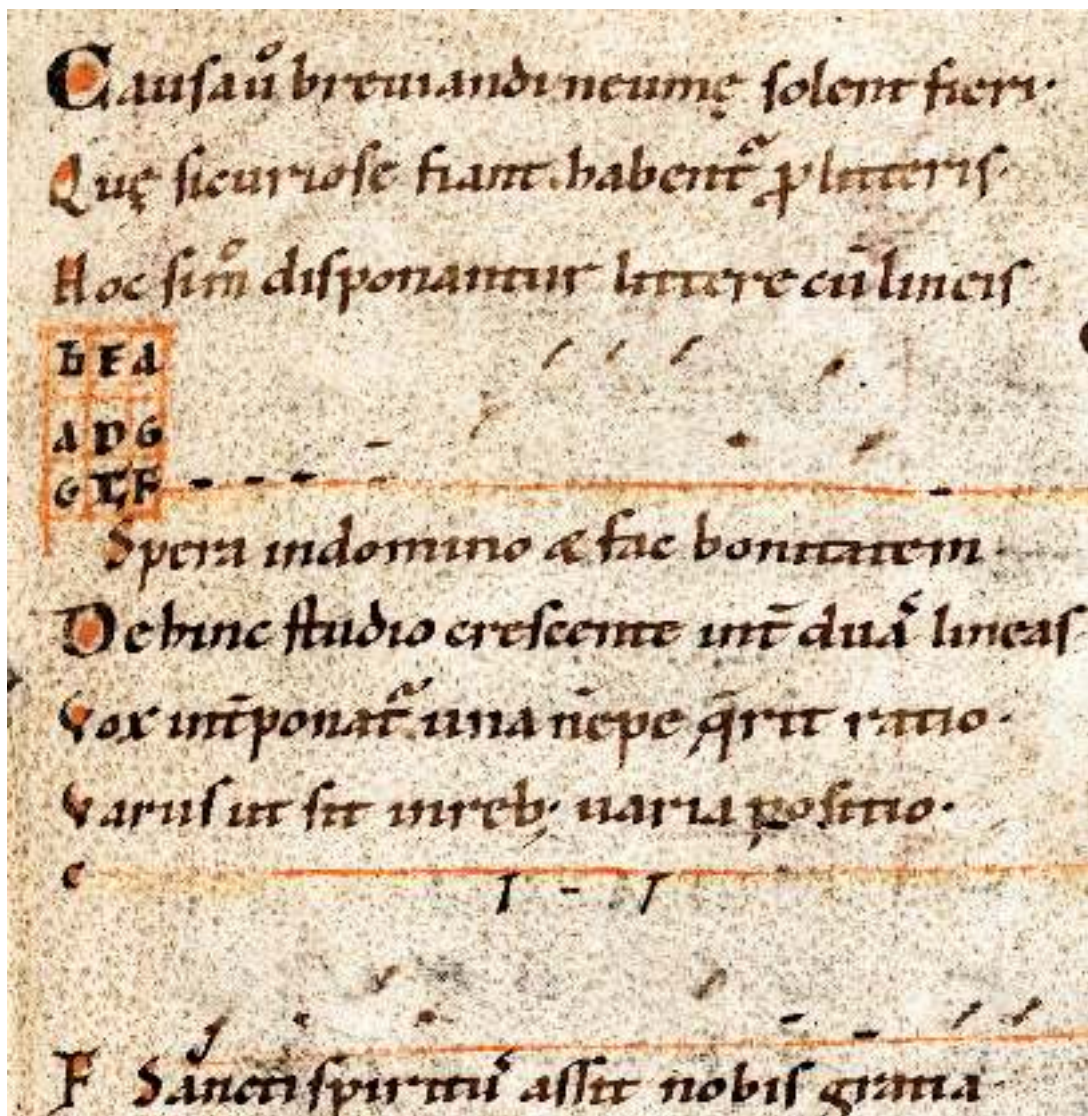 Causa uͦ breuiandi neumę solent fieri·
Quę si curiose fiant habent᷑ ꝓ litteris·
Hoc sim̄ͦ disponantur littere cū lineis·
b E A
A D G
G C F
Spera in domino & fac bonitatem
Dehinc studio crescente int̄ duaˢ lineas·
Vox int̄ponat᷑ una nēpe q̄rit ratio·
Varius ut sit in reb; uaria positio·
c
F Sancti spirituˢ assit nobis gratia·